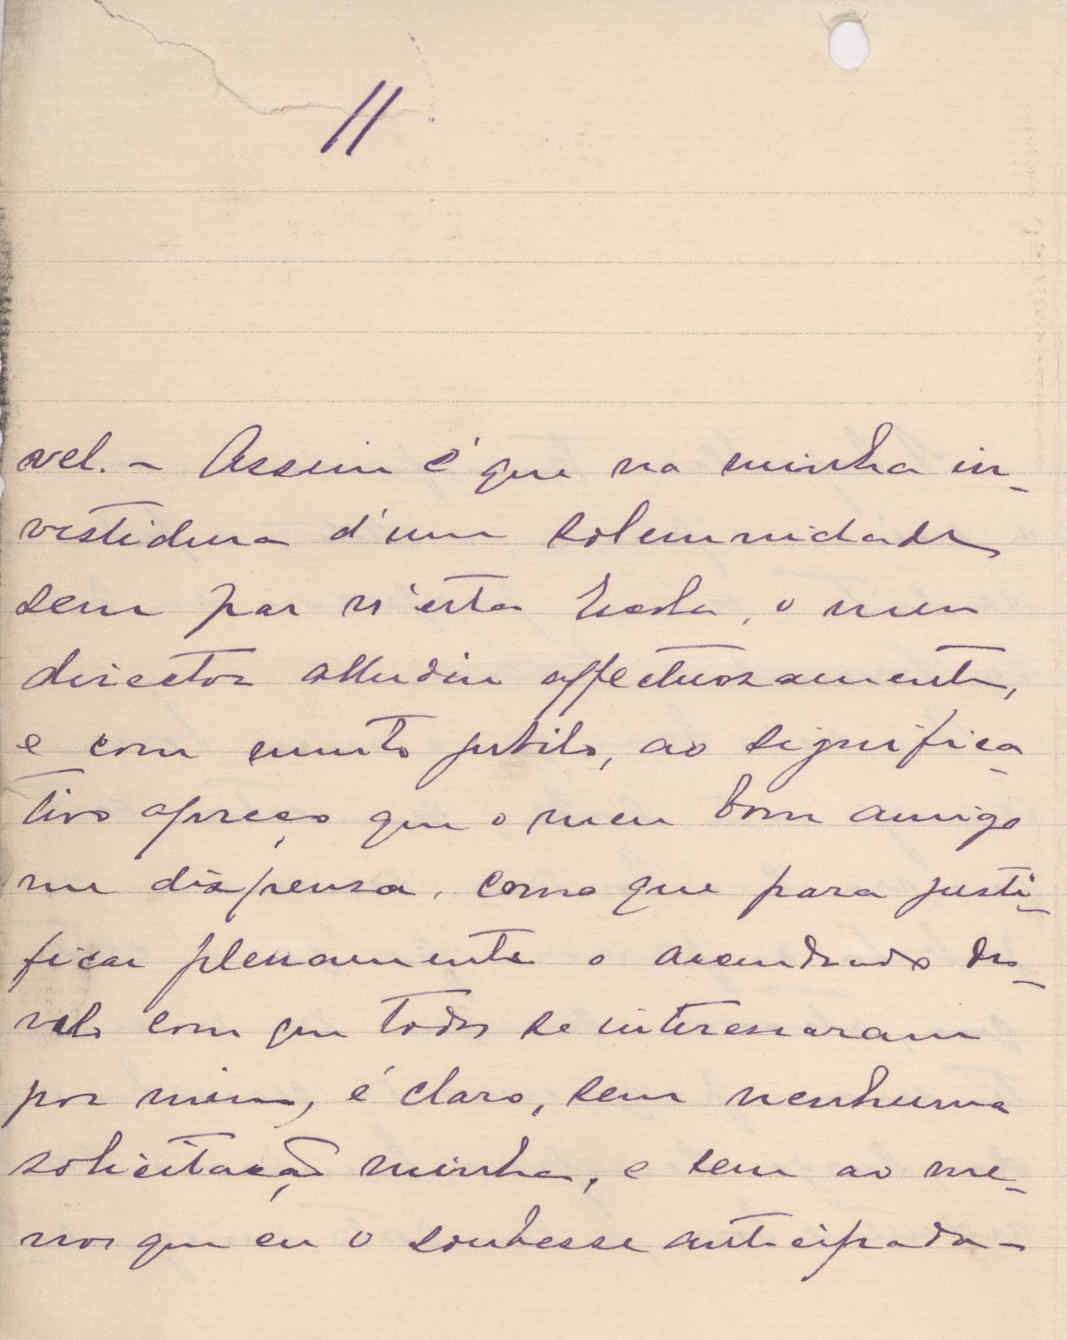 11
vel. - Assim é que na minha in-
vestidura d'uma solemnidade
sem par n'esta Escola, o meu
director alludiu affectuosamente,
e com muito jubilo, ao significa-
tivo apreço que o meu bom amigo
me dispensa, como que para justi-
ficar plenamente o acendrado des-
velo com que todos se interessaram
por mim, é claro, sem nenhuma
solicitação minha, e sem ao me-
nos que eu o soubesse antecipada-